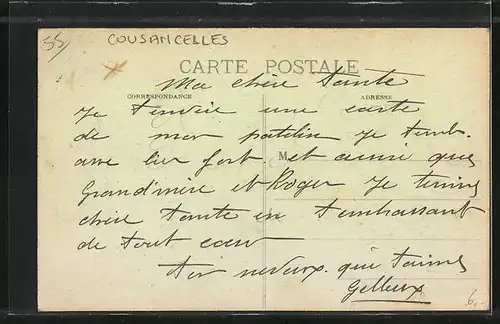 55/
COUSANCELLES
CARTE POSTALE
Ma chère tante
CORRESPONDANCE
ADRESSE
Je t'envoie une carte
de mon patelin Je t'emb.
asse bien fort et aussi que
M
Grand'mère et Roger Je termine
chère tante en t'embrassant
de tout cœur
ton neveux qui t'aime
6.-